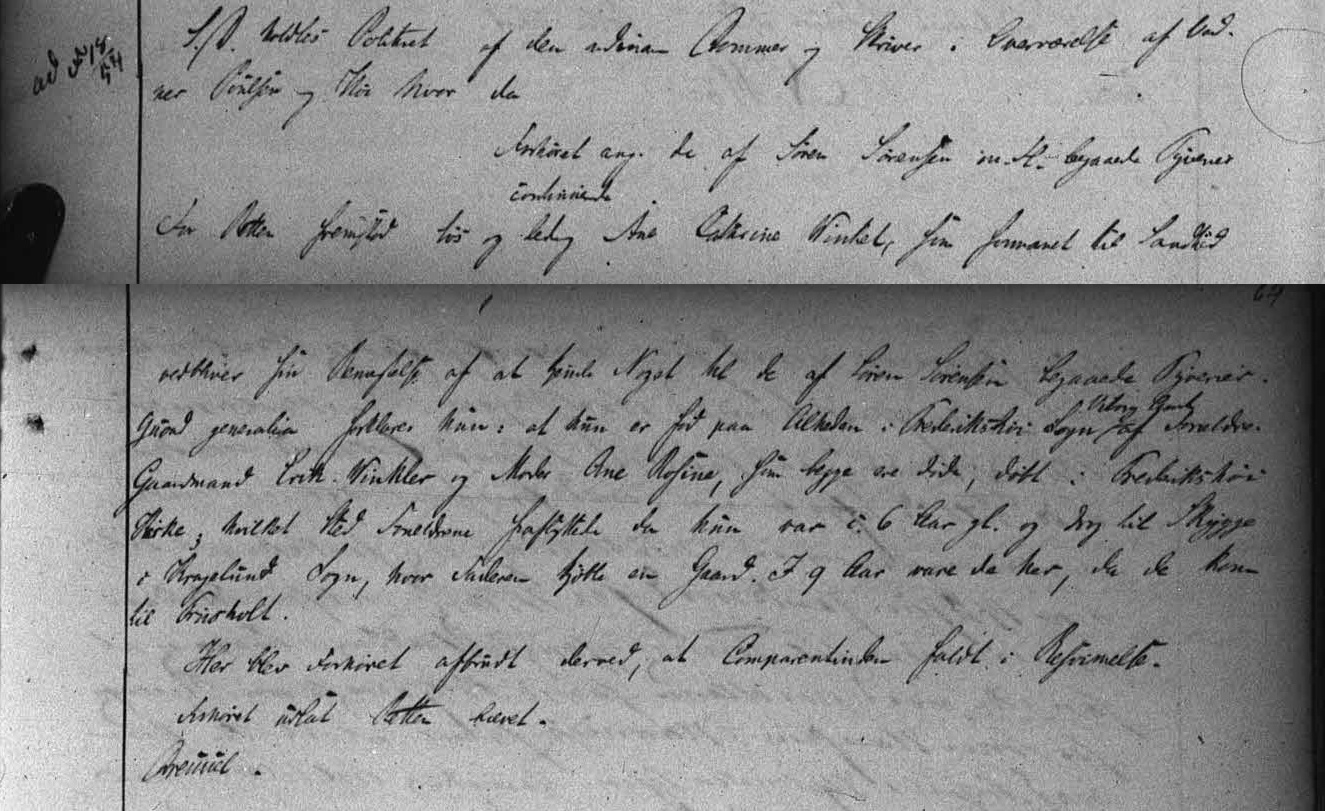 ad No 18/54
S. D. holdtes Politiret af den ordinaire Dommer og Skriver i Overværelse af Vid-
ner Poulsen og Høi hvor da
Forhøret ang. de af Søren Sørensen m. fl. begaaede Tyverier
continuerede
For Retten fremstod løs og ledig Ane Cathrine Winkel, som formanet til Sandhed
64
vedbliver sin Benægtelse af at kjende Noget til de af Søren Sørensen begaaede Tyverier.
Quoad generalia forklarer hun: at hun er fød paa Alheden i Frederikshøi Sogn Viborg Amt af Forældre
Gaardmand Erik Winkler og Moder Ane Rosine, som begge ere døde, døbt i Frederikshøi
Kirke; hvilket Sted Forældrene fraflyttede da hun var c. 6 Aar gl. og drog til Skygge
i Kragelund Sogn, hvor Faderen kjøbte en Gaard. I 9 Aar vare de her, da de kom
til Truust.
Her blev Forhøret afbrudt derved, at Comparentinden faldt i Besvimelse.
Forhøret udsat Retten hævet.